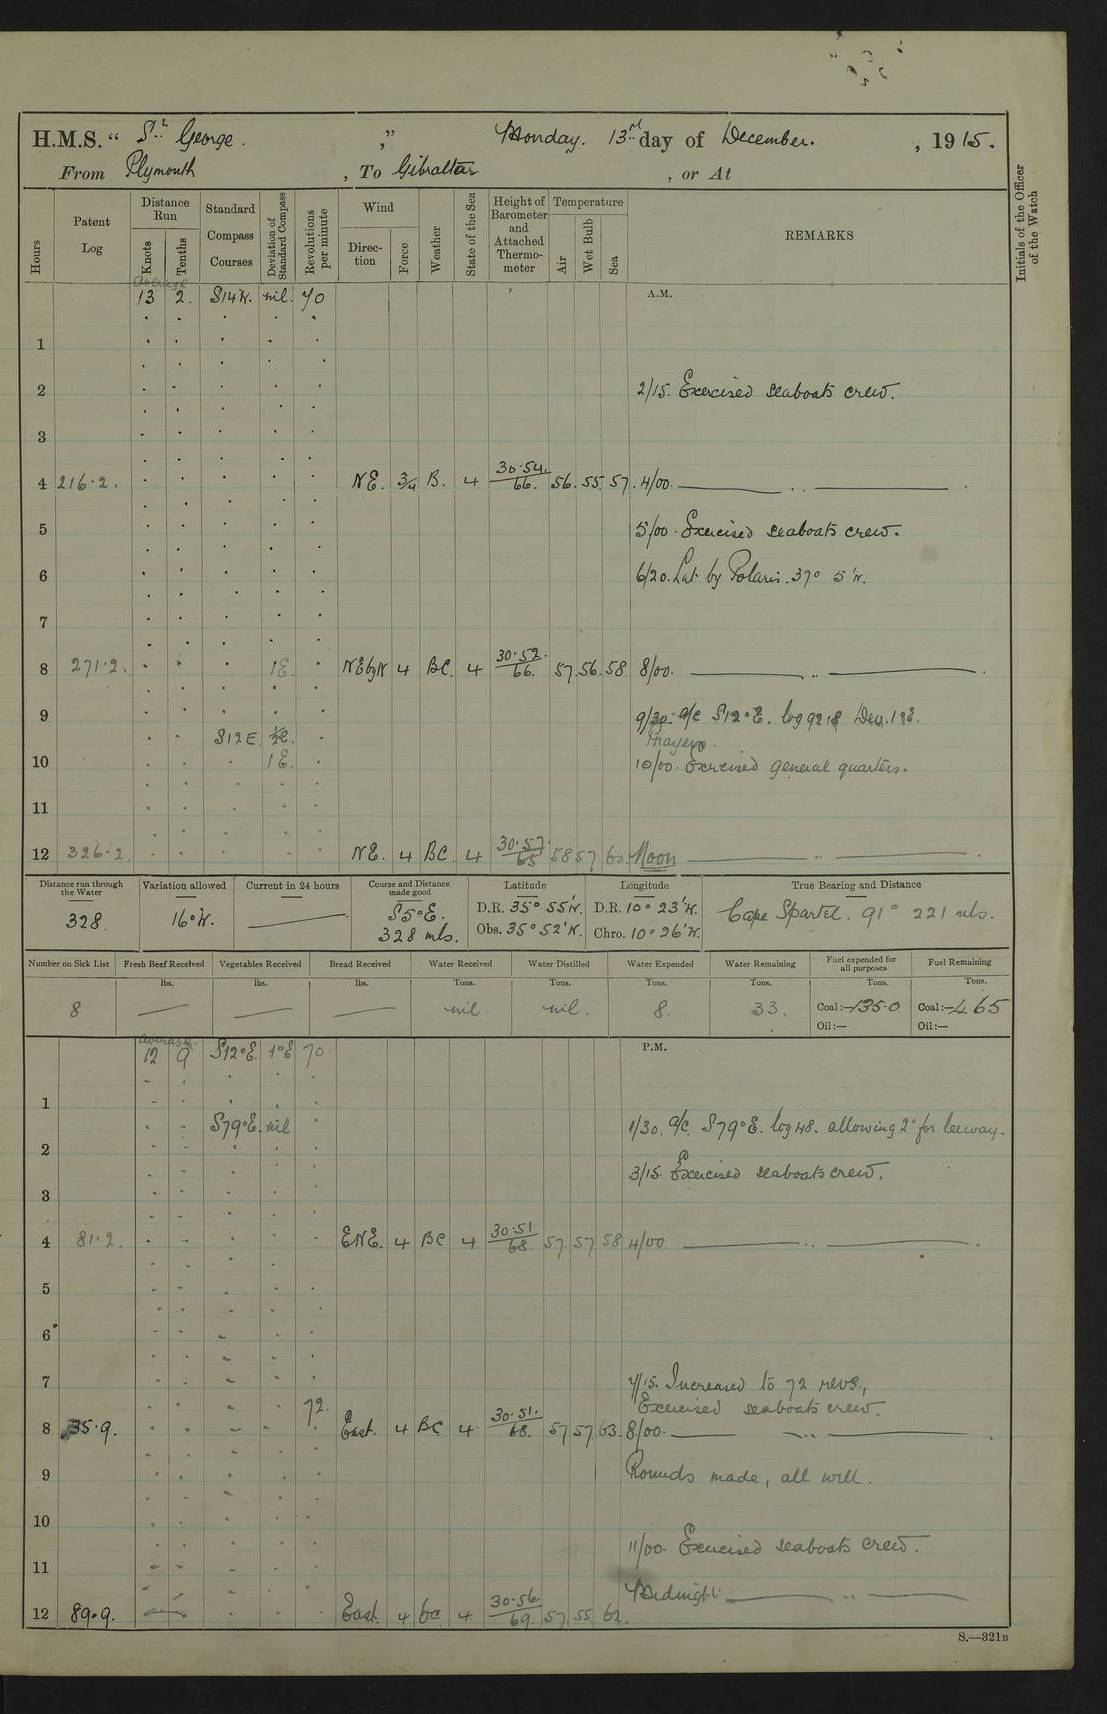 H.M.S. " St George. " Monday. 13rd day of December. , 1915.
From Plymouth , To Gibraltar , or At
Hours
Patent Log
Distance Run
Knots
Tenths
Standard Compass Courses
Deviation of Standard Compass
Revolutions per minute
Wind
Direction
Force
Weather
State of the Sea
Height of Barometer and Attached Thermometer
Temperature
Air
Wet Bulb
Sea
REMARKS
Initials of the Officer of the Watch
average
13 2. S14W. nil. 70 A.M.
1
2 2/15. Exercised seaboats crew.
3
4 216.2. NE. 3/4 B. 4 30.54. / 66. 56. 55. 57. 4/00. ——— .. ——— .
5 5/00. Exercised seaboats crew.
6 6/20. Lat by Polaris. 37° 5'N.
7
8 271.2. 1E. NEbyN 4 BC. 4 30.52. / 66. 57. 56. 58 8/00. ——— .. ——— .
9 9/30. a/c S12°E. log 92.8 Dev. 1°E.
S12E. ½E. Prayers.
10 1E. 10/00. Exercised general quarters.
11
12 326.2. NE. 4 BC. 4 30.57. / 65 58 57 60. Noon ——— .. ——— .
Distance run through the Water
328.
Variation allowed
16°W.
Current in 24 hours
———
Course and Distance made good
S5°E.
328 mls.
Latitude
D.R. 35° 55'N.
Obs. 35° 52'N.
Longitude
D.R. 10° 23'W.
Chro. 10° 26'W.
True Bearing and Distance
Cape Spartel. 91° 221 mls.
Number on Sick List
8
Fresh Beef Received
lbs.
——
Vegetables Received
lbs.
——
Bread Received
lbs.
——
Water Received
Tons.
nil.
Water Distilled
Tons.
nil.
Water Expended
Tons.
8.
Water Remaining
Tons.
33.
Fuel expended for all purposes
Tons.
Coal:—135.0
Oil:—
Fuel Remaining
Tons.
Coal:—465
Oil:—
average
12 9 S12°E. 1°E 70. P.M.
1
S79°E. nil 1/30. a/c. S79°E. log 48. allowing 2° for leeway.
2
3/15. Exercised seaboats crew.
3
4 81.2. ENE. 4 BC 4 30.51 / 68. 57. 57. 58 4/00. ——— .. ——— .
5
6
7 7/15. Increased to 72 revs.,
72. Exercised seaboats crew.
8 35.9. East. 4 BC 4. 30.51. / 68. 57 57. 63. 8/00. ——— .. ——— .
9 Rounds made, all well.
10
11/00. Exercised seaboats crew.
11
Midnight ——— .. ———
12 89.9. East. 4 bc. 4 30.56. / 69. 57. 55. 62.
S.—321B